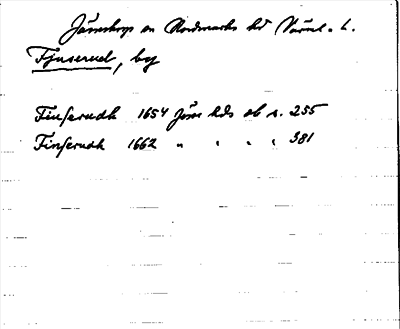 Järnskogs sn Nordmarks hd Värml. l.
Fjuserud, by
Finserudh 1654 Jöss hds db s. 255
Finserudh 1662 " " " " 381